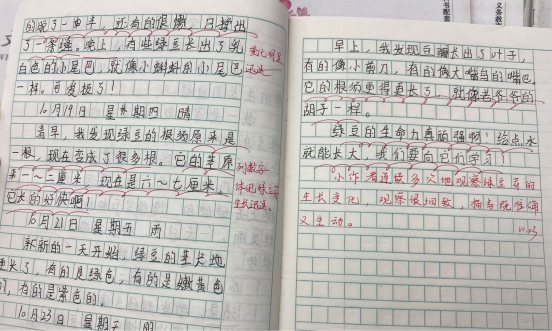 的脱了一半,还有的很懒,只撑出
了一条缝。晚上,有些绿豆长出了乳
白色的小尾巴,就像小蝌蚪的小尾巴
一样。可爱极了!
10月19日 星期四 晴
清早,我发现绿豆的根须原来是
一根,现在变成了很多根。它的茎原
来一~二厘米,现在是六~七厘米。
它长的好快啊!
10月21日 星期五 雨
新的一天开始,绿豆的茎长地
更长了,有的是绿色,有的是嫩黄色
的,有的是紫色的。
10月23日 星期
变化明显
迅速
列数字
体现绿豆
生长迅速。
早上,我发现豆瓣长出了叶子,
有的像小剪刀,有的像大嘴鸟的嘴巴。
它的根须更得更长了,就像老爷爷的
胡子一样。
绿豆的生命力真顽强啊!给点水
就能长大,我们要向它们学习!
小作者连续多次地观察绿豆的
生长变化,观察很细致,描写既准确
又生动。